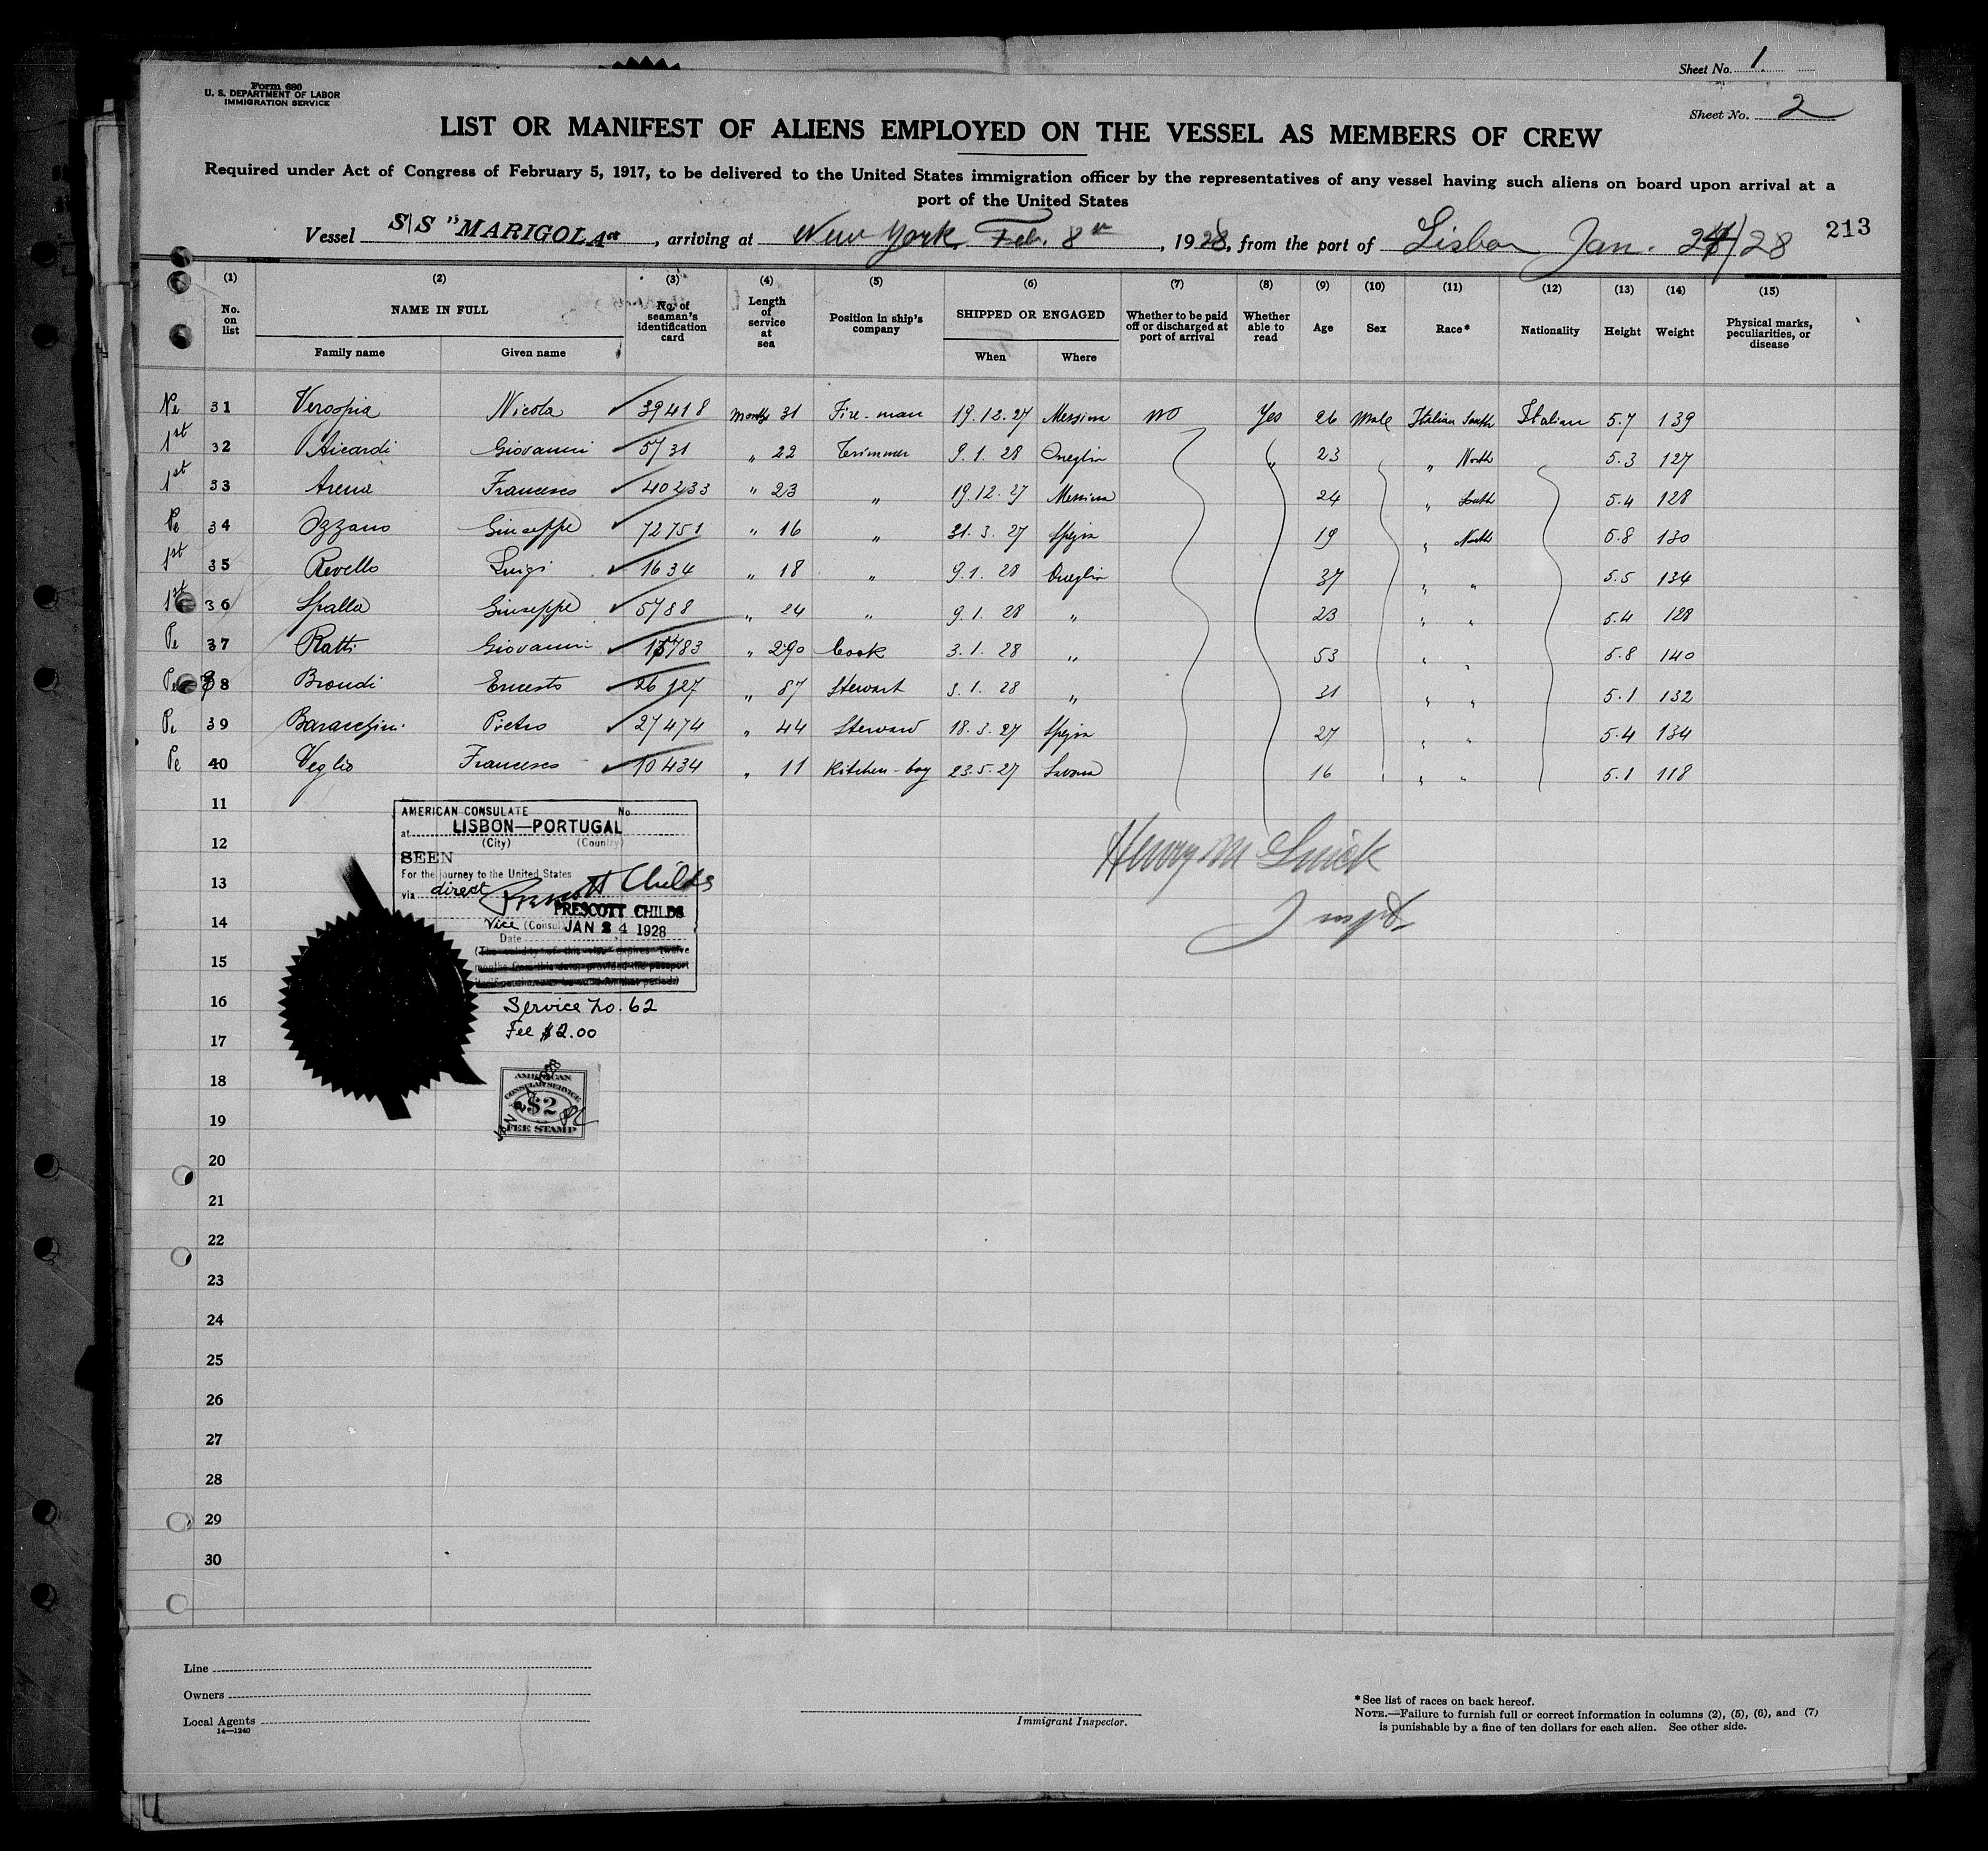 Sheet No. 1
Form 680
U. S. DEPARTMENT OF LABOR
IMMIGRATION SERVICE
Sheet No. 2
LIST OR MANIFEST OF ALIENS EMPLOYED ON THE VESSEL AS MEMBERS OF CREW
Required under Act of Congress of February 5, 1917, to be delivered to the United States immigration officer by the representatives of any vessel having such aliens on board upon arrival at a
port of the United States
Vessel S/S "MARIGOLA", arriving at New York, Feb. 8th, 1928, from the port of Lisbon Jan. 24/28 213
(1) (2) (3) (4) (5) (6) (7) (8) (9) (10) (11) (12) (13) (14) (15)
No. on list NAME IN FULL No. of seaman's identification card Length of service at sea Position in ship's company SHIPPED OR ENGAGED Whether to be paid off or discharged at port of arrival Whether able to read Age Sex Race* Nationality Height Weight Physical marks, peculiarities, or disease
Family name Given name When Where
Pe 31 Nicola 39418 Months 31 Fire-man 19.12.27 Messina no Yes 26 Male Italian South Italian 5.7 139
1st 32 Aicardi Giovanni 5731 " 22 Trimmer 9.1.28 Oneglia " 23 " North 5.3 127
1st 33 Arena Francesco 40233 " 23 " 19.12.27 Messina 24 " South 5.4 128
Pe 34 Ozzano Giuseppe 72751 " 16 " 31.3.27 Spezia 19 " North 5.8 130
1st 35 Revello Luigi 1634 " 18 " 9.1.28 Oneglia 37 " " 5.5 134
1st 36 Spalla Giuseppe 5788 " 24 " 9.1.28 " 23 " " 5.4 128
Pe 37 Ratti Giovanni " 290 Cook 3.1.28 " 53 " " 5.8 140
Pe 38 Brondi Ernesto 26127 " 87 Stewart 3.1.28 " 31 " " 5.1 132
Pe 39 Baracchini Pietro 27474 " 44 Steward 18.3.27 Spezia 27 " " 5.4 134
Pe 40 Veglio Francesco 10434 " 11 Kitchen-boy 23.5.27 Savona 16 " " 5.1 118
11
12
13
14
15
16
17
18
19
20
21
22
23
24
25
26
27
28
29
30
AMERICAN CONSULATE No.
at LISBON—PORTUGAL
(City) (Country)
SEEN
For the journey to the United States
via direct Prescott Childs
PRESCOTT CHILDS
Vice (Consul) JAN 24 1928
Date
(The validity of this visa expires twelve
months from this date, provided the passport
Service No. 62
Fee $2.00
AMERICAN
CONSULAR SERVICE
$2
FEE STAMP
JAN 24 1928
PC
Henry M
Inspt
Line
Owners
Local Agents
14—1240
Immigrant Inspector.
*See list of races on back hereof.
NOTE.—Failure to furnish full or correct information in columns (2), (5), (6), and (7)
is punishable by a fine of ten dollars for each alien. See other side.